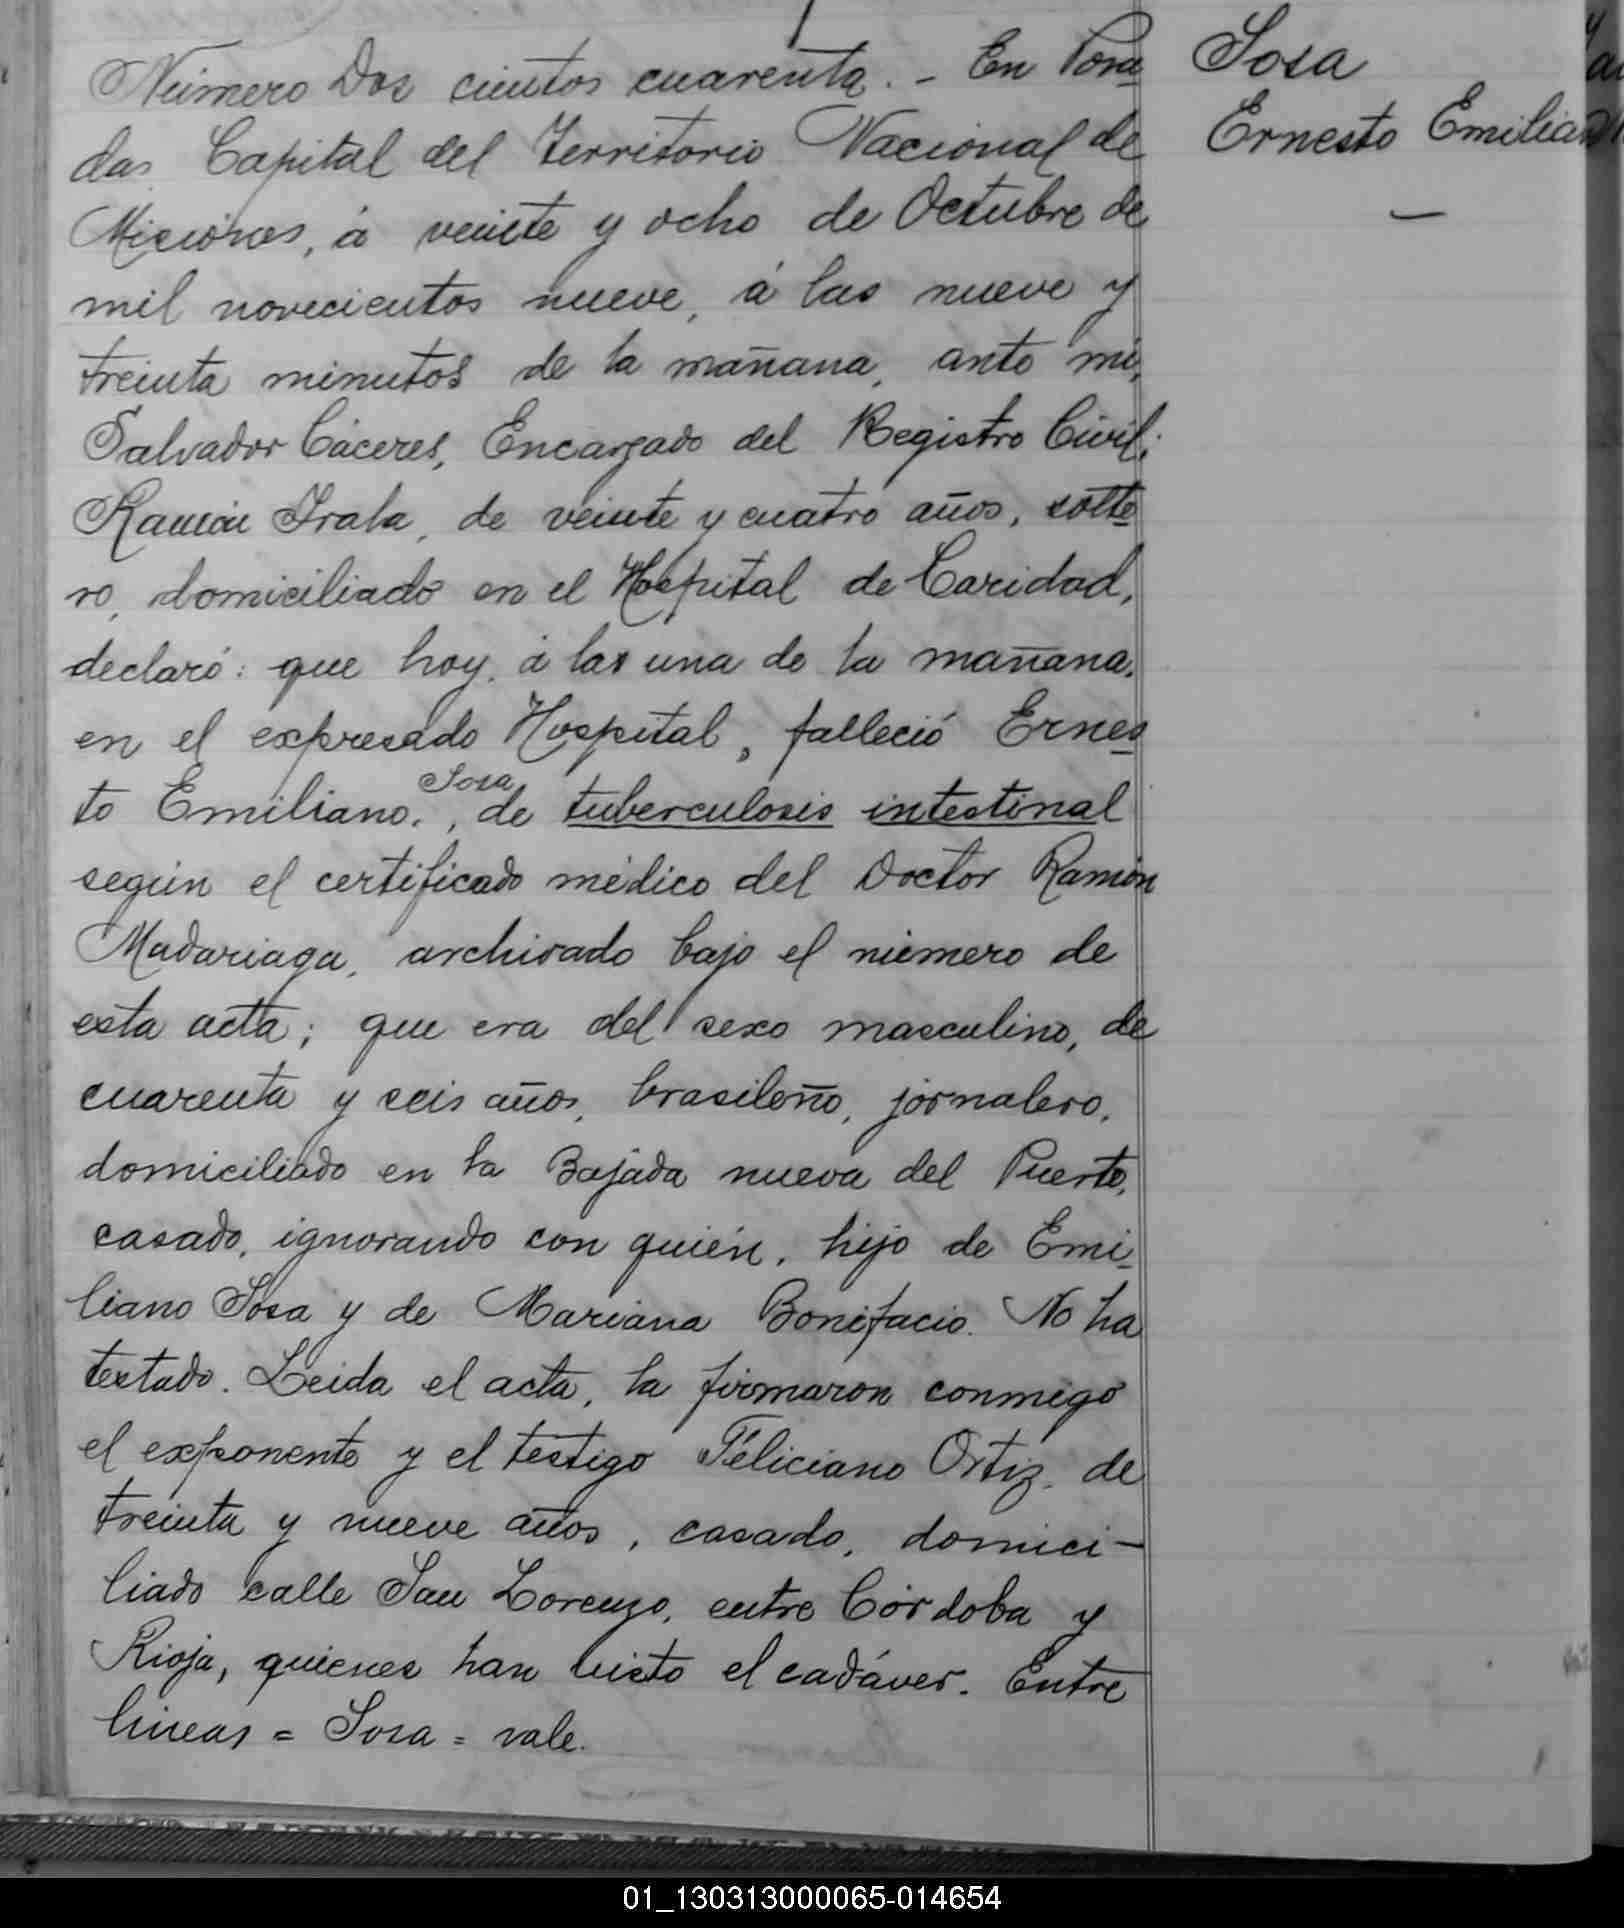 Número Dos cientos cuarenta. - En Posa
das Capital del Territorio Nacional de
Misiones, á veinte y ocho de Octubre de
mil novecientos nueve, á las nueve y
treinta minutos de la mañana, ante mí,
Salvador Cáceres, Encargado del Registro Civil;
Ramón Irala, de veinte y cuatro años, solte
ro, domiciliado en el Hospital de Caridad,
declaró: que hoy, á las una de la mañana,
en el expresado Hospital, falleció Ernes
Sosa
to Emiliano, de tuberculosis intestinal
según el certificado médico del Doctor Ramón
Madariaga, archivado bajo el número de
esta acta; que era del sexo masculino, de
cuarenta y seis años, brasileño, jornalero,
domiciliado en la Bajada nueva del Puerto,
casado, ignorando con quién, hijo de Emi
liano Sosa y de Mariana Bonifacio. No ha
testado. Leida el acta, la firmaron conmigo
el exponente y el testigo Féliciano Ortiz, de
treinta y nueve años, casado, domici-
liado calle San Lorenzo, entre Córdoba y
Rioja, quienes han visto el cadáver. Entre
lineas = Sosa = vale.
Sosa
Ernesto Emiliano
01_130313000065-014654